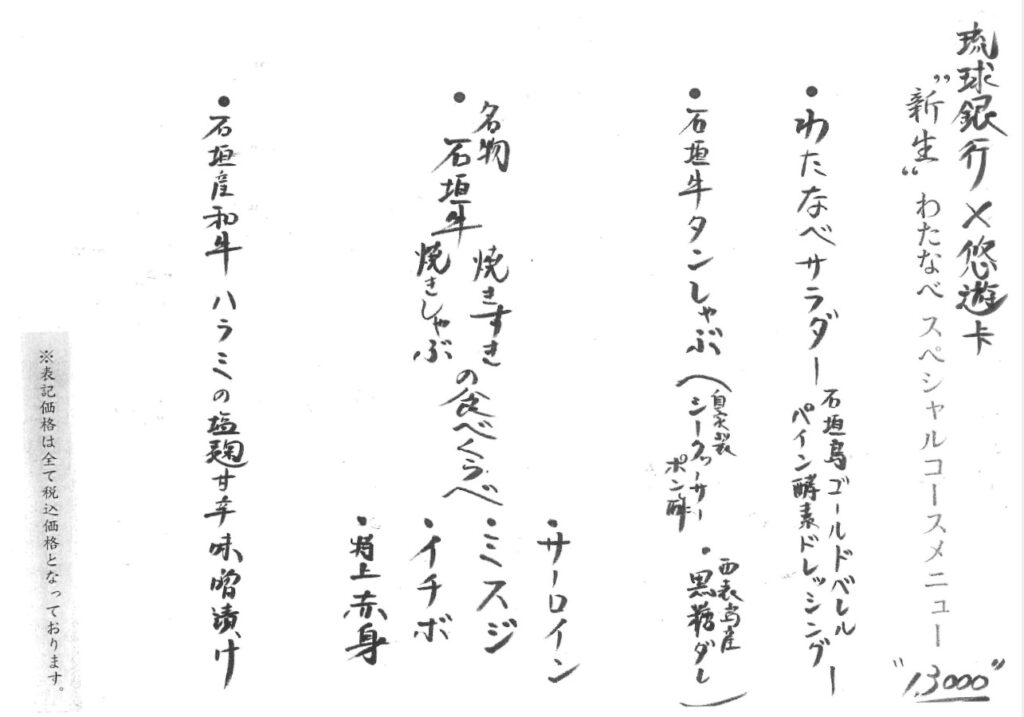 琉球銀行×悠遊卡
"新生"わたなべスペシャルコースメニュー "13000"
・わたなべサラダー
石垣島ゴールドベレルー
パイン酵素ドレッシング
・石垣牛タンしゃぶ(自家製
シークワーサー
ポン酢
・西表島産
黒糖ダレ)
・名物
石垣牛
焼きすき
焼きしゃぶ
の食べくらべ
・サーロイン
・ミスジ
・イチボ
・特上赤身
・石垣産和牛ハラミの塩麹甘辛味噌漬け
※表記価格は全て税込価格となっております。